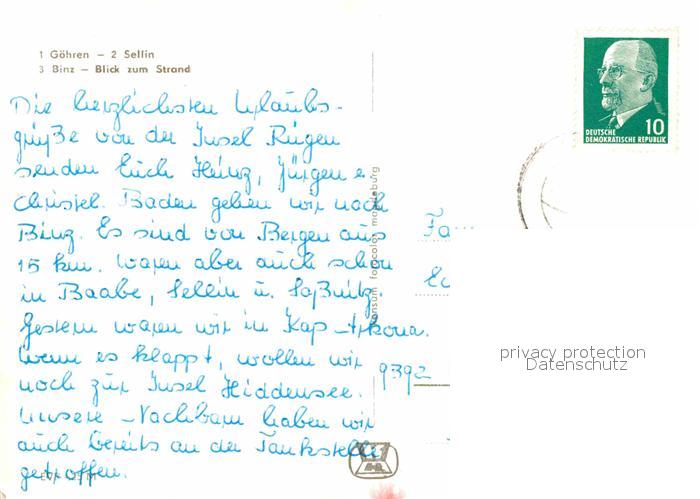 1 Göhren – 2 Sellin
3 Binz – Blick zum Strand
Die herzlichsten Urlaubs-
grüße von der Insel Rügen
senden Euch Heinz, Jürgen u.
Christel. Baden gehen wir nach
Binz. Es sind von Bergen aus
15 km. Waren aber auch schon
in Baabe, Sellin u. Saßnitz.
Gestern waren wir in Kap-Arkona.
Wenn es klappt, wollen wir
noch zur Insel Hiddensee.
Unsere Nachbarn haben wir
auch bereits an der Tankstelle
getroffen.
konsum fotocolor magdeburg
DEUTSCHE
DEMOKRATISCHE REPUBLIK
10
Fa
9392
privacy protection
Datenschutz